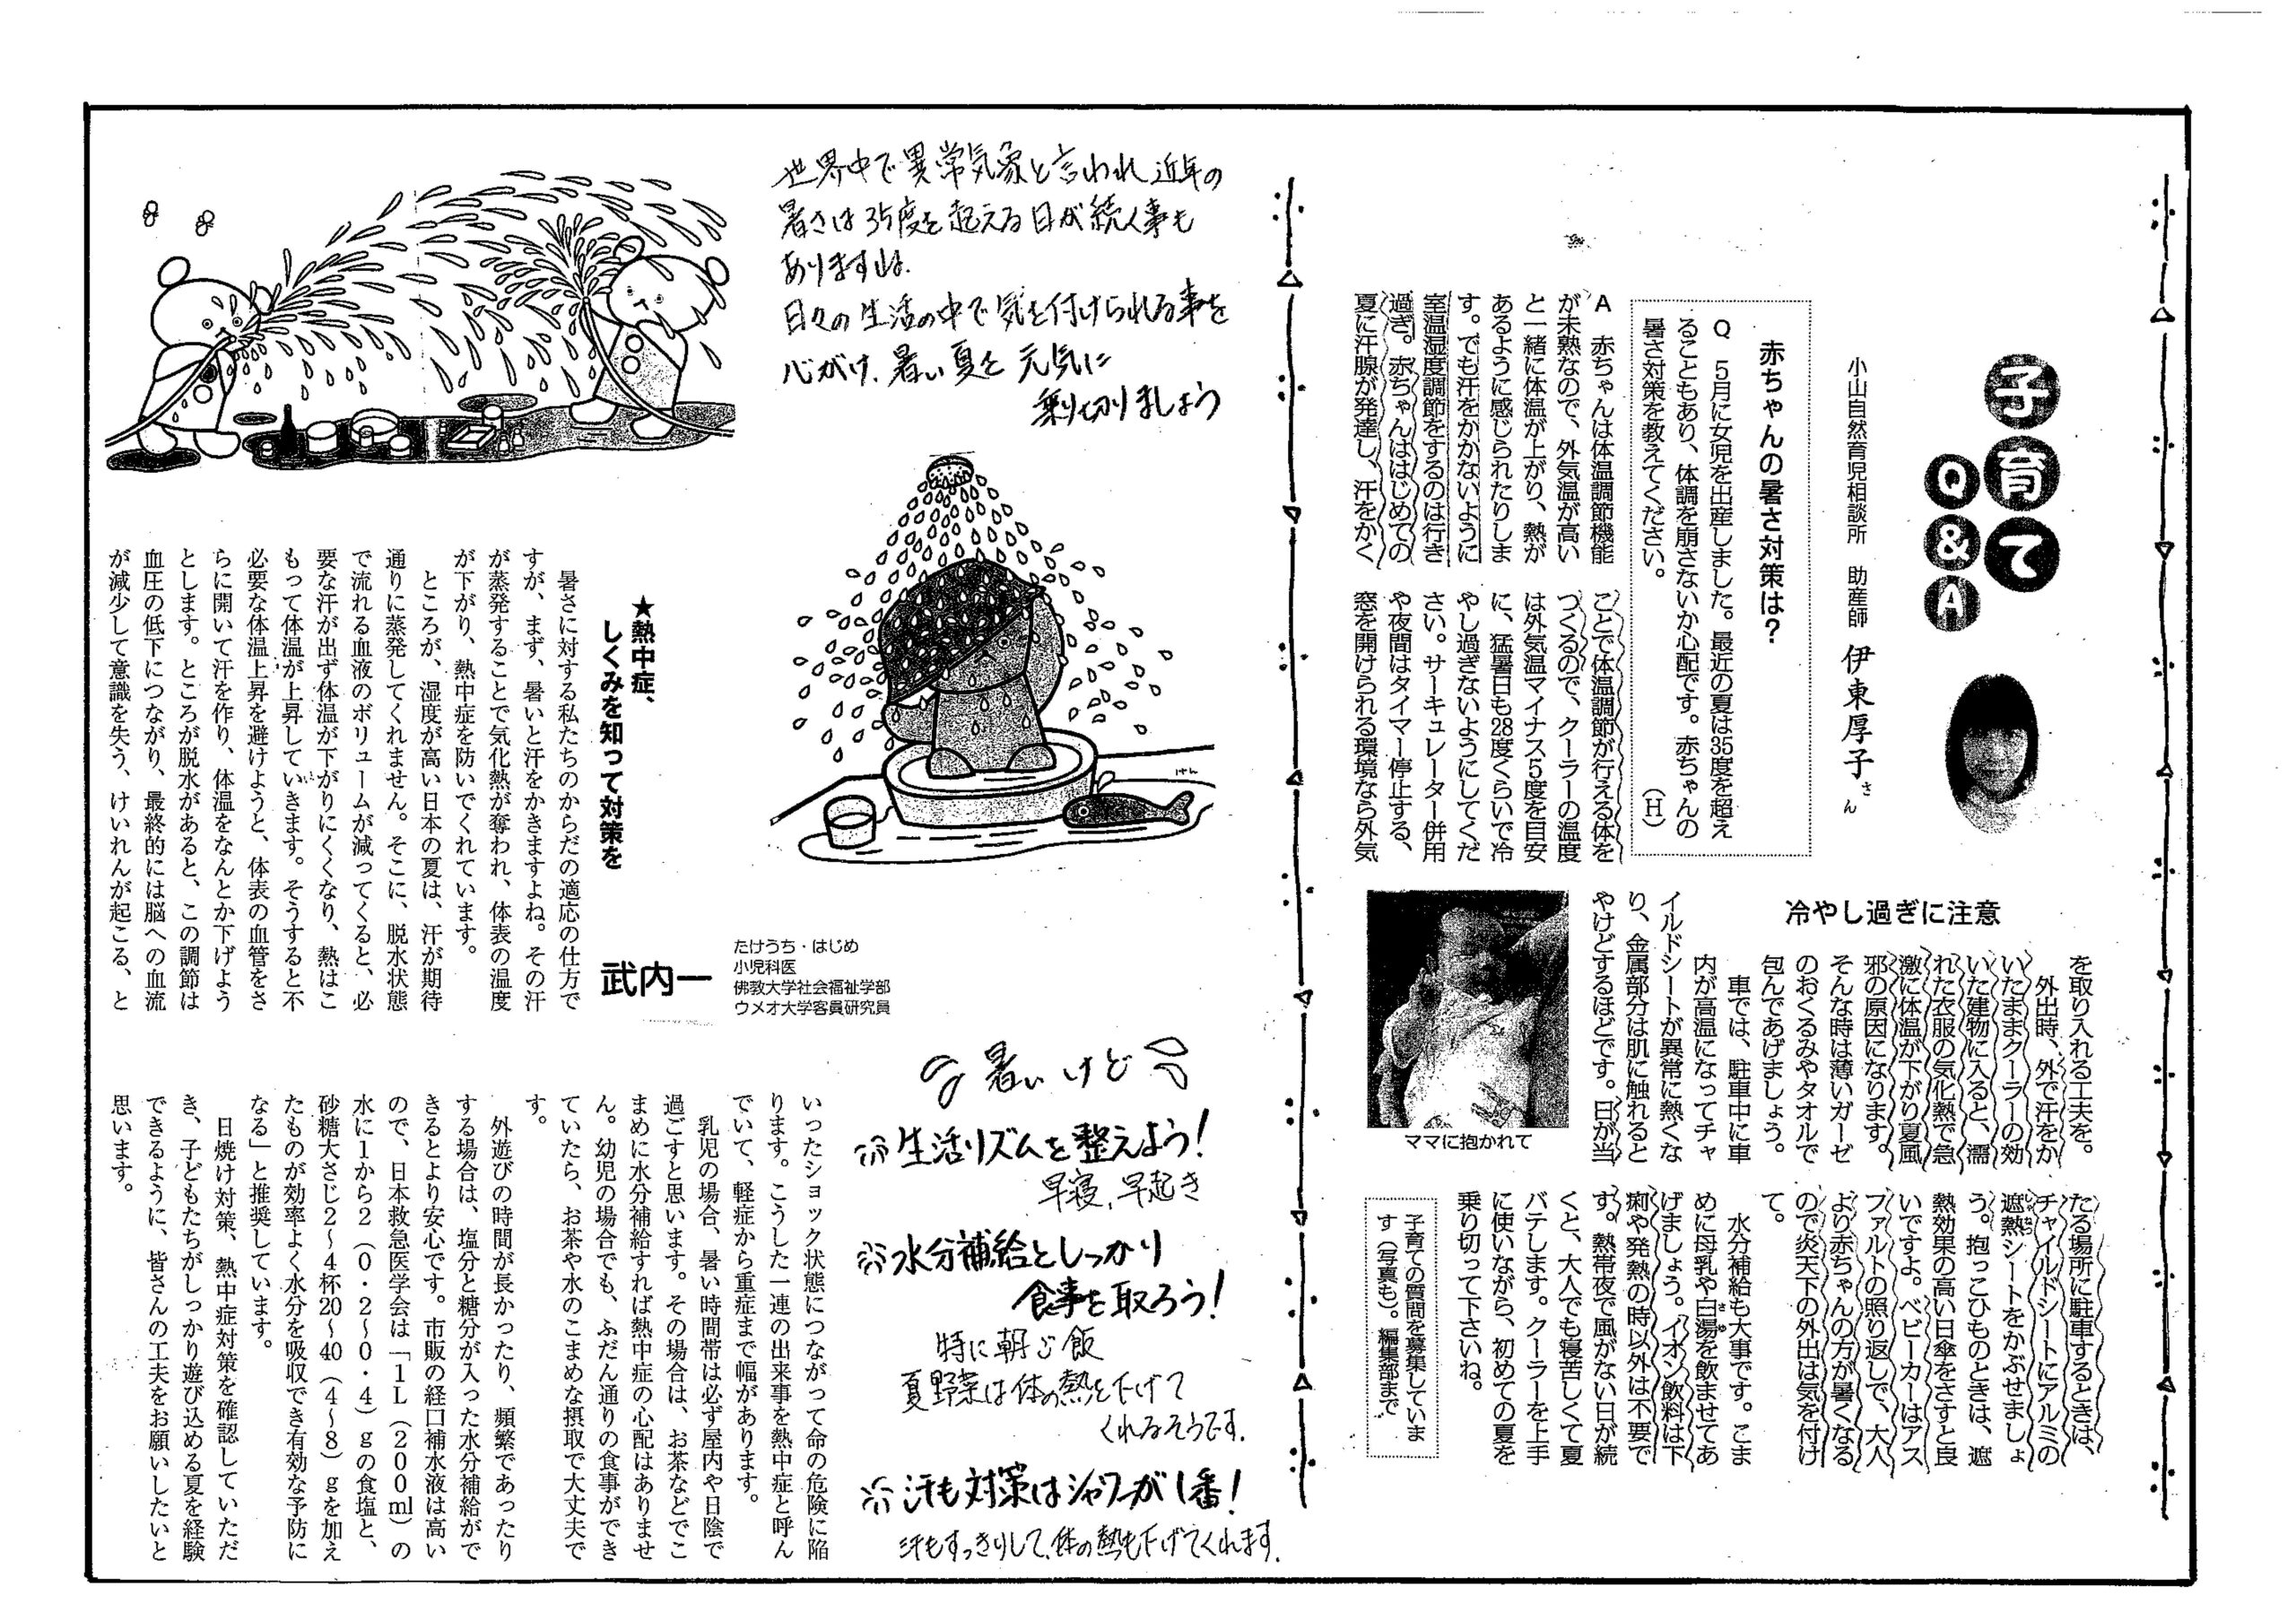 子育て
Q&A
小山自然育児相談所　助産師　伊東厚子さん
赤ちゃんの暑さ対策は？
Q　5月に女児を出産しました。最近の夏は35度を超え
ることもあり、体調を崩さないか心配です。赤ちゃんの
暑さ対策を教えてください。　（H）
A　赤ちゃんは体温調節機能
が未熟なので、外気温が高い
と一緒に体温が上がり、熱が
あるように感じられたりしま
す。でも汗をかかないように
室温湿度調節をするのは行き
過ぎ。赤ちゃんははじめての
夏に汗腺が発達し、汗をかく
ことで体温調節が行える体を
つくるので、クーラーの温度
は外気温マイナス5度を目安
に、猛暑日も28度くらいで冷
やし過ぎないようにしてくだ
さい。サーキュレーター併用
や夜間はタイマー停止する、
窓を開けられる環境なら外気
冷やし過ぎに注意
を取り入れる工夫を。
外出時、外で汗をか
いたままクーラーの効
いた建物に入ると、濡
れた衣服の気化熱で急
激に体温が下がり夏風
邪の原因になります。
そんな時は薄いガーゼ
のおくるみやタオルで
包んであげましょう。
車では、駐車中に車
内が高温になってチャ
イルドシートが異常に熱くな
り、金属部分は肌に触れると
やけどするほどです。日が当
ママに抱かれて
たる場所に駐車するときは、
チャイルドシートにアルミの
遮熱シートをかぶせましょ
う。抱っこひものときは、遮
熱効果の高い日傘をさすと良
いですよ。ベビーカーはアス
ファルトの照り返しで、大人
より赤ちゃんの方が暑くなる
ので炎天下の外出は気を付け
て。
水分補給も大事です。こま
めに母乳や白湯を飲ませてあ
げましょう。イオン飲料は下
痢や発熱の時以外は不要で
す。熱帯夜で風がない日が続
くと、大人でも寝苦しくて夏
バテします。クーラーを上手
に使いながら、初めての夏を
乗り切って下さいね。
子育ての質問を募集していま
す（写真も）。編集部まで
世界中で異常気象と言われ近年の
暑さは35度を超える日が続く事も
ありますね。
日々の生活の中で気を付けられる事を
心がけ、暑い夏を元気に
乗り切りましょう
★熱中症、
しくみを知って対策を
武内一
たけうち・はじめ
小児科医
佛教大学社会福祉学部
ウメオ大学客員研究員
暑さに対する私たちのからだの適応の仕方で
すが、まず、暑いと汗をかきますよね。その汗
が蒸発することで気化熱が奪われ、体表の温度
が下がり、熱中症を防いでくれています。
ところが、湿度が高い日本の夏は、汗が期待
通りに蒸発してくれません。そこに、脱水状態
で流れる血液のボリュームが減ってくると、必
要な汗が出ず体温が下がりにくくなり、熱はこ
もって体温が上昇していきます。そうすると不
必要な体温上昇を避けようと、体表の血管をさ
らに開いて汗を作り、体温をなんとか下げよう
とします。ところが脱水があると、この調節は
血圧の低下につながり、最終的には脳への血流
が減少して意識を失う、けいれんが起こる、と
いったショック状態につながって命の危険に陥
ります。こうした一連の出来事を熱中症と呼ん
でいて、軽症から重症まで幅があります。
乳児の場合、暑い時間帯は必ず屋内や日陰で
過ごすと思います。その場合は、お茶などでこ
まめに水分補給すれば熱中症の心配はありませ
ん。幼児の場合でも、ふだん通りの食事ができ
ていたら、お茶や水のこまめな摂取で大丈夫で
す。
外遊びの時間が長かったり、頻繁であったり
する場合は、塩分と糖分が入った水分補給がで
きるとより安心です。市販の経口補水液は高い
ので、日本救急医学会は「1L（200ml）の
水に1から2（0・2〜0・4）gの食塩と、
砂糖大さじ2〜4杯20〜40（4〜8）gを加え
たものが効率よく水分を吸収でき有効な予防に
なる」と推奨しています。
日焼け対策、熱中症対策を確認していただ
き、子どもたちがしっかり遊び込める夏を経験
できるように、皆さんの工夫をお願いしたいと
思います。
暑いけど
生活リズムを整えよう！
早寝、早起き
水分補給としっかり
食事を取ろう！
特に朝ご飯
夏野菜は体の熱を下げて
くれるそうです。
汗も対策はシャワーが1番！
汗もすっきりして、体の熱も下げてくれます。